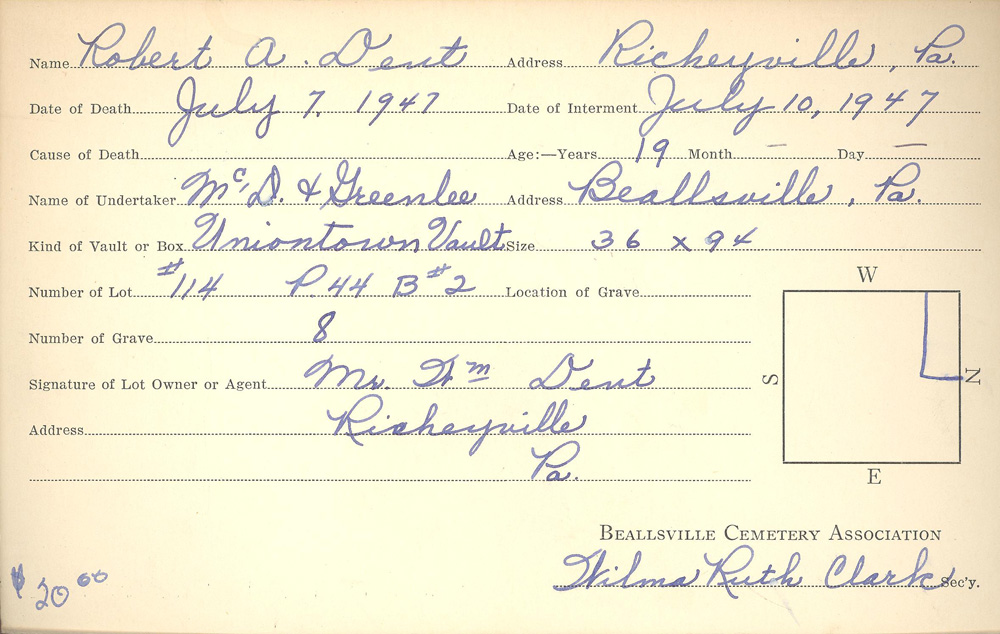 Name Robert A. Dent Address Richeyville, Pa.
Date of Death July 7, 1947 Date of Interment July 10, 1947
Cause of Death Age:—Years 19 Month — Day —
Name of Undertaker McD. & Greenlee Address Beallsville, Pa.
Kind of Vault or Box Uniontown Vault Size 36 x 94
Number of Lot #114 P. 44 B#2 Location of Grave
Number of Grave 8
Signature of Lot Owner or Agent Mr. Wm Dent
Address Richeyville
Pa.
W
S
N
E
BEALLSVILLE CEMETERY ASSOCIATION
Wilma Ruth Clark Sec'y.
$20.00